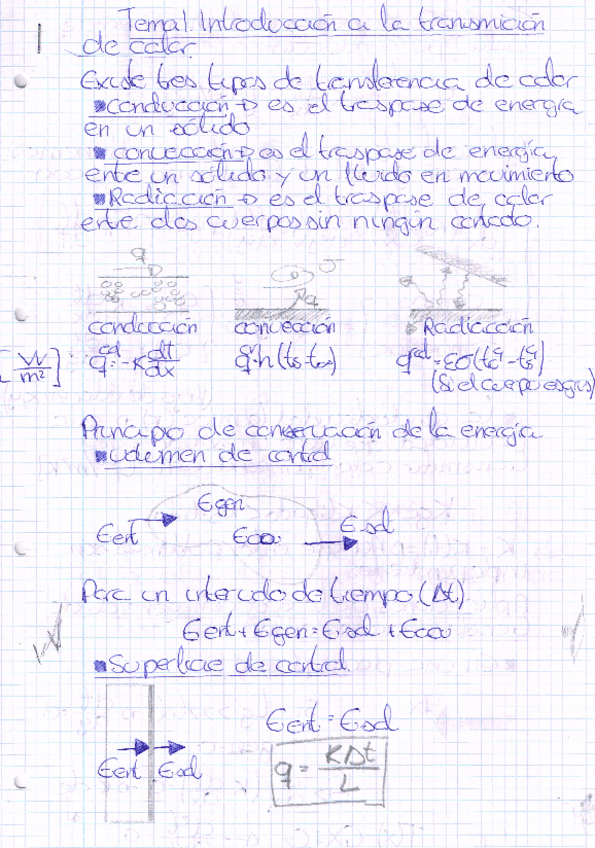 1
Tema 1. Introducción a la transmisión
de calor.
Existe tres tipos de transferencia de calor
▪conducción → es el traspase de energía
en un sólido
▪ convección → es el traspase de energía
ente un sólido y un fluido en movimiento
▪Radiación → es el traspase de calor
entre dos cuerpos sin ningún contacto.
q
q
conducción convección Radiación
[W/m²]: q^cd = -K dt/dx q^cv = h(ts-t∞) q^rad = εσ(tc⁴-ts⁴)
(Si el cuerpo es gris)
Principio de conservación de la energía
▪volumen de control
Egen
Eent Eacu Esal
Para un intervalo de tiempo (Δt)
Eent + Egen = Esal + Eacu
▪Superficie de control
Eent = Esal
Eent Esal
q = KΔt/L